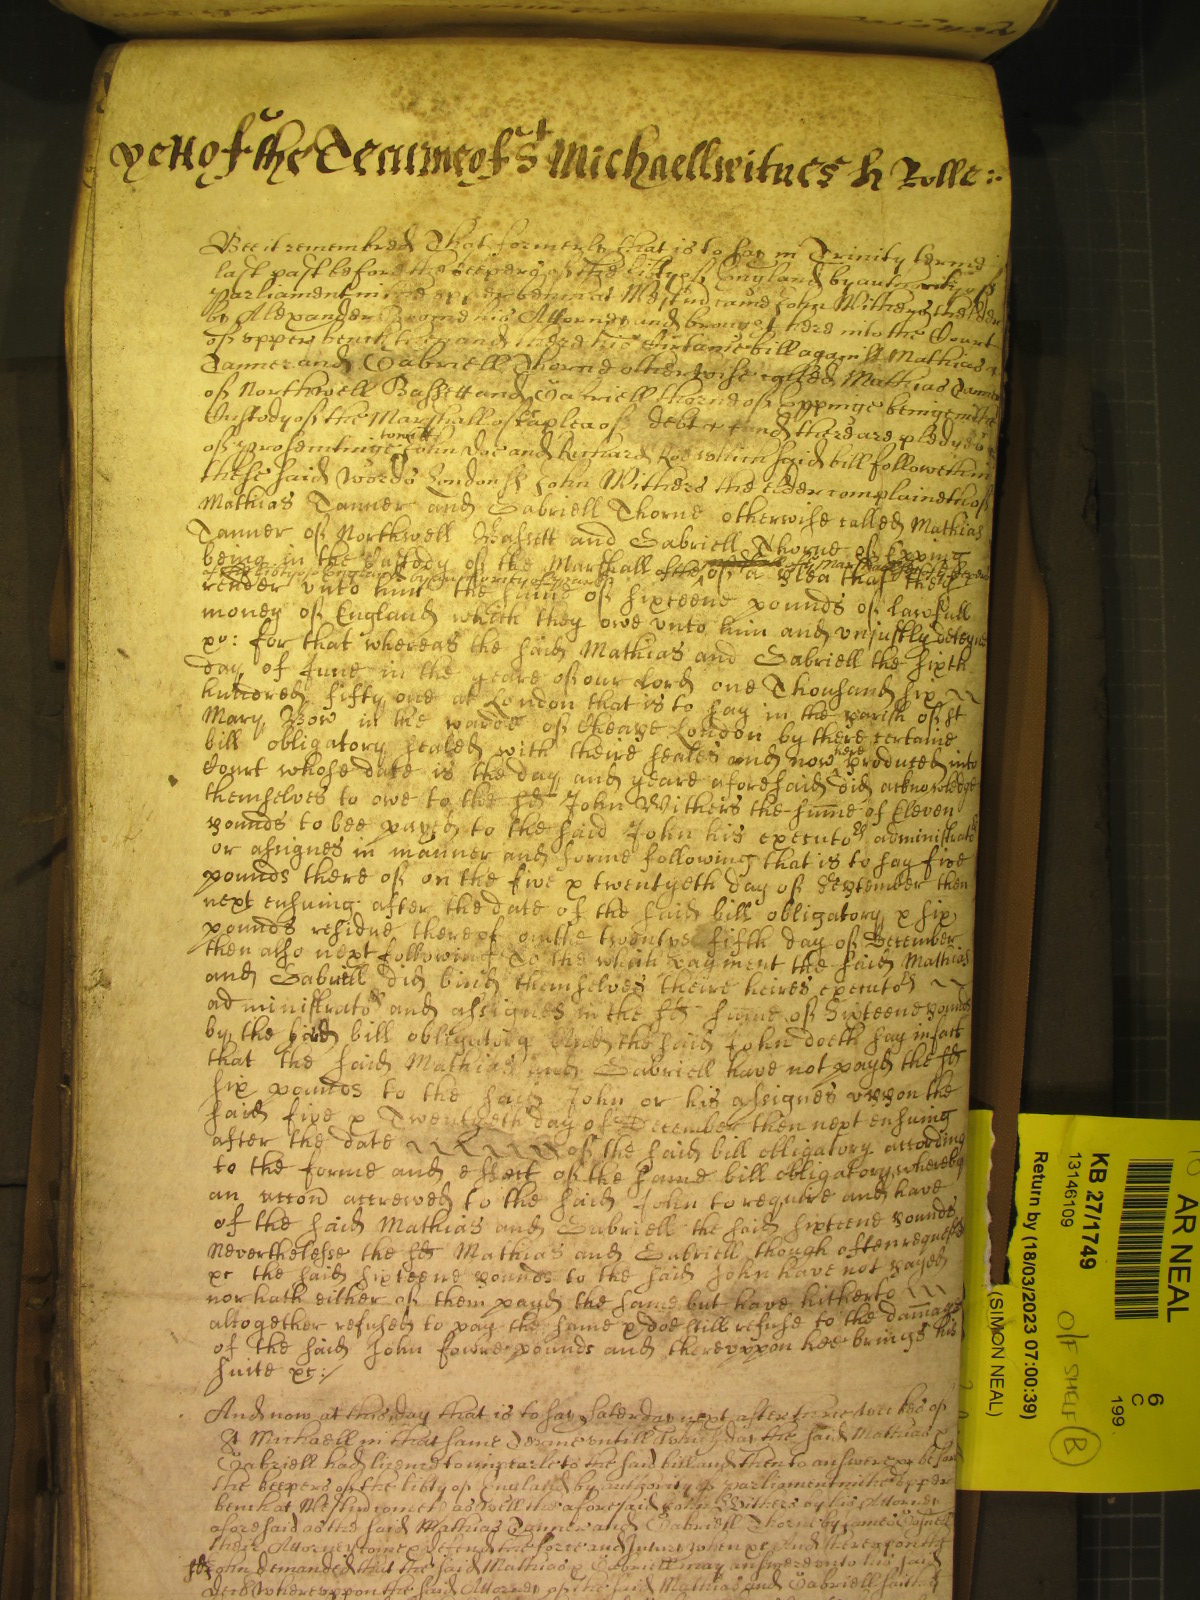 yett of the Tearme of St Michaell witnes h Rolle :
Bee it remembred That formerly that is to say in Trinity terme
last past before the keepers of the liberty of England by authority of
Parliament in the upper bench at Westm came John Withers the elder
by Alexander his Attorney and brought here into the Court
of upper bench then and there his certaine bill against Mathias
Tanner and Gabriell Thorne otherwise called Mathias Tanner
of Northwell Bassett and Gabriell thorne of Eppinge beinge in the
Custody of the Marshall &c of a plea of debt & and there are pledges
of prosentinge to witt John Doe and Richard Roe which said bill followeth in
these said words London ss John Withers the elder complaineth of
Mathias Tanner and Gabriell Thorne otherwise called Mathias
Tanner of Northwell Bassett and Gabriell Thorne of Epping
being in the Custody of the Marshall of the of a plea that they
render unto him the sume of sixteene pounds of lawfull
money of England which they owe unto him and unjustly deteyne
&c: for that whereas the said Mathias and Gabriell the sixth
day of June in the yeare of our Lord one Thousand six
hundred fifty one at London that is to say in the parish of St
Mary Bow in the warde of Cheape London by there certaine
bill obligatory sealed with theire seales and now here produced into
Court whose date is the day and yeare aforesaid did acknowledge
themselves to owe to the sd John Withers the sume of Eleven
pounds to bee payed to the said John his executors administrators
or assignes in manner and forme following that is to say five
pounds there of on the five & twentyeth day of September then
next ensuing after the date of the said bill obligatory & six
pounds residue thereof on the twentye fifth day of December
then also next following To the which payment the said Mathias
and Gabriell did bind themselves theire heires executors
administrators and assignes in the sd sume of Sixteene pounds
by the said bill obligatory And the said John doth say in fact
that the said Mathias and Gabriell have not payd the sd
six pounds to the said John or his assignes uppon the
said five & Twentyeth day of December then next ensuing
after the date of the said bill obligatory according
to the forme and effect of the same bill obligatory whereby
an accon accrewed to the said John to require and have
of the said Mathias and Gabriell the said sixteene pounds
Neverthelesse the sd Mathias and Gabriell though often requested
&c the said sixteene pounds to the said John have not payed
nor hath either of them payd the same but have hitherto
altogether refused to pay the same & doe still refuse to the damage
of the said John fowre pounds and thereuppon hee brings his
suite &c:/
And now at this day that is to say Saterday next after three weekes of
St Michaell in that same Terme untill which day the said Mathias &
Gabriell had licence to imparle to the said bill and then to answere &c before
the keepers of the libty of England by authority of parliament in the upper
bench at Westm come aswell the aforesaid John Withers by his Attorney
aforesaid as the said Mathias Tanner and Gabriell Thorne by James
their Attorney come & defend the force and injury when &c And thereupon the
sd John demandeth that the said Mathias & Gabriell may answere unto his said
whereuppon the said Attorney of the said Mathias and Gabriell saith
AR NEAL
6
C
199
KB 27/1749
13146109
Return by (18/03/2023 07:00:39)
(SIMON NEAL)
O/F SHELF B